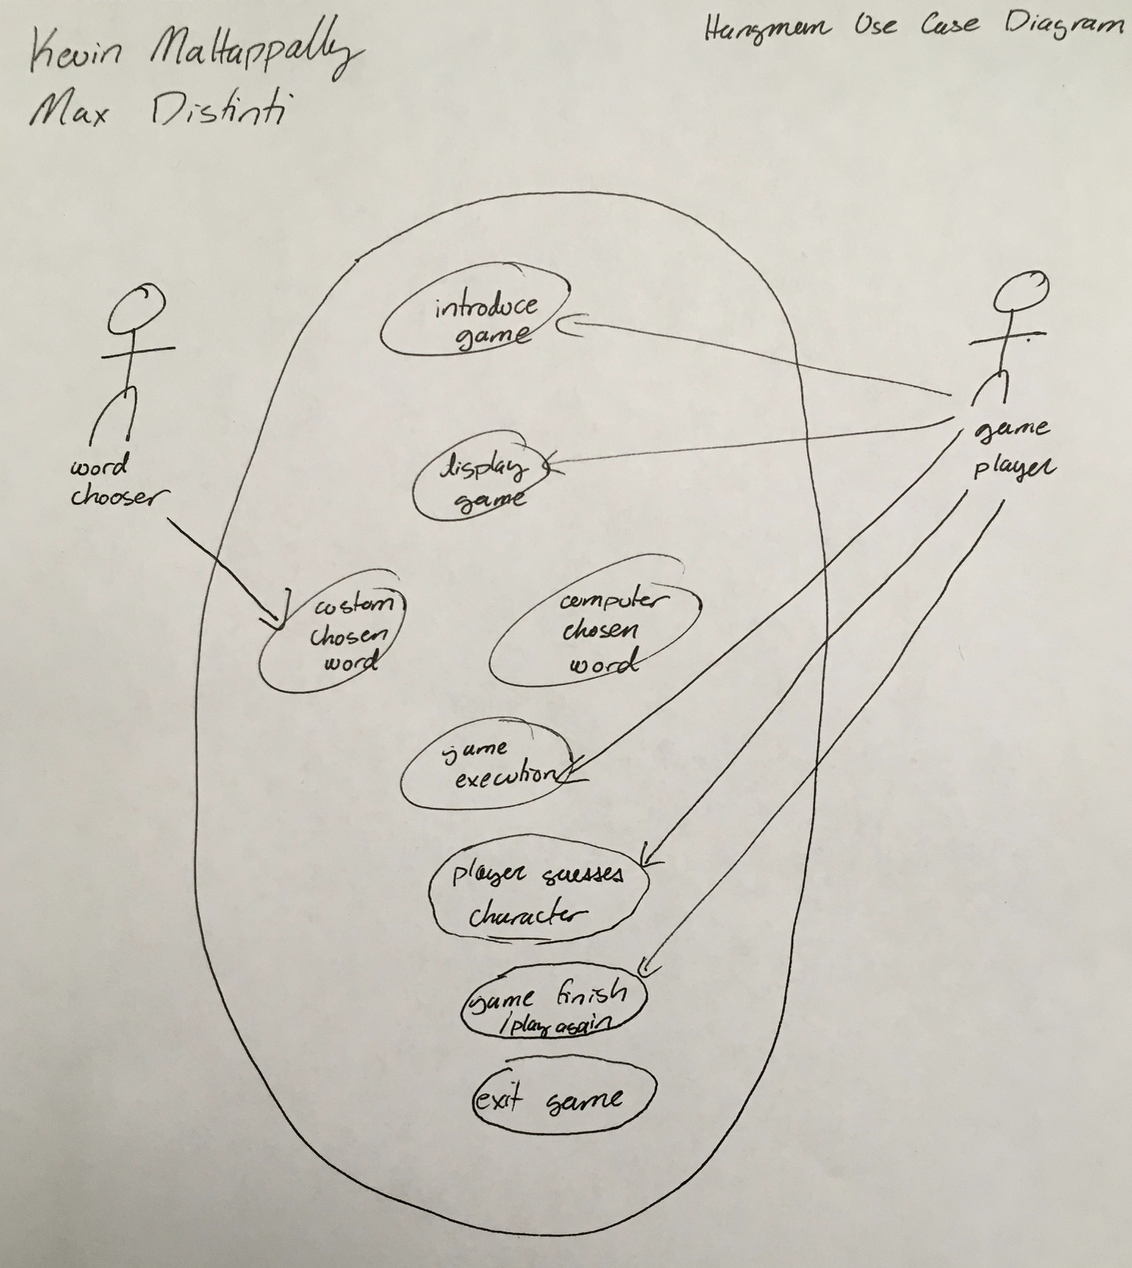 Kevin Mattappally
Max Distinti
Hangman Use Case Diagram
introduce
game
display
game
word
chooser
game
player
custom
chosen
word
computer
chosen
word
game
execution
player guesses
character
game finish
/play again
exit game